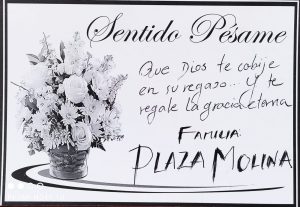 Sentido Pésame
Que Dios te cobije
en su regazo.. Y te
regale la gracia eterna
FAMILIA:
PLAZA MOLINA